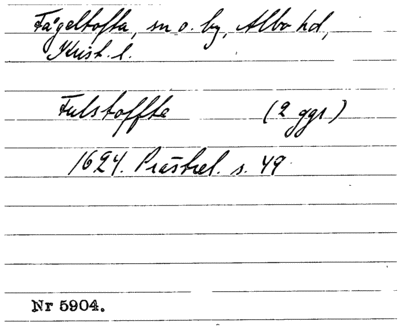 Fågeltofta, sn o. by, Albo hd,
Krist. l.
Fulstoffte (2 ggr)
1624. Prästrel. s. 49
Nr 5904.